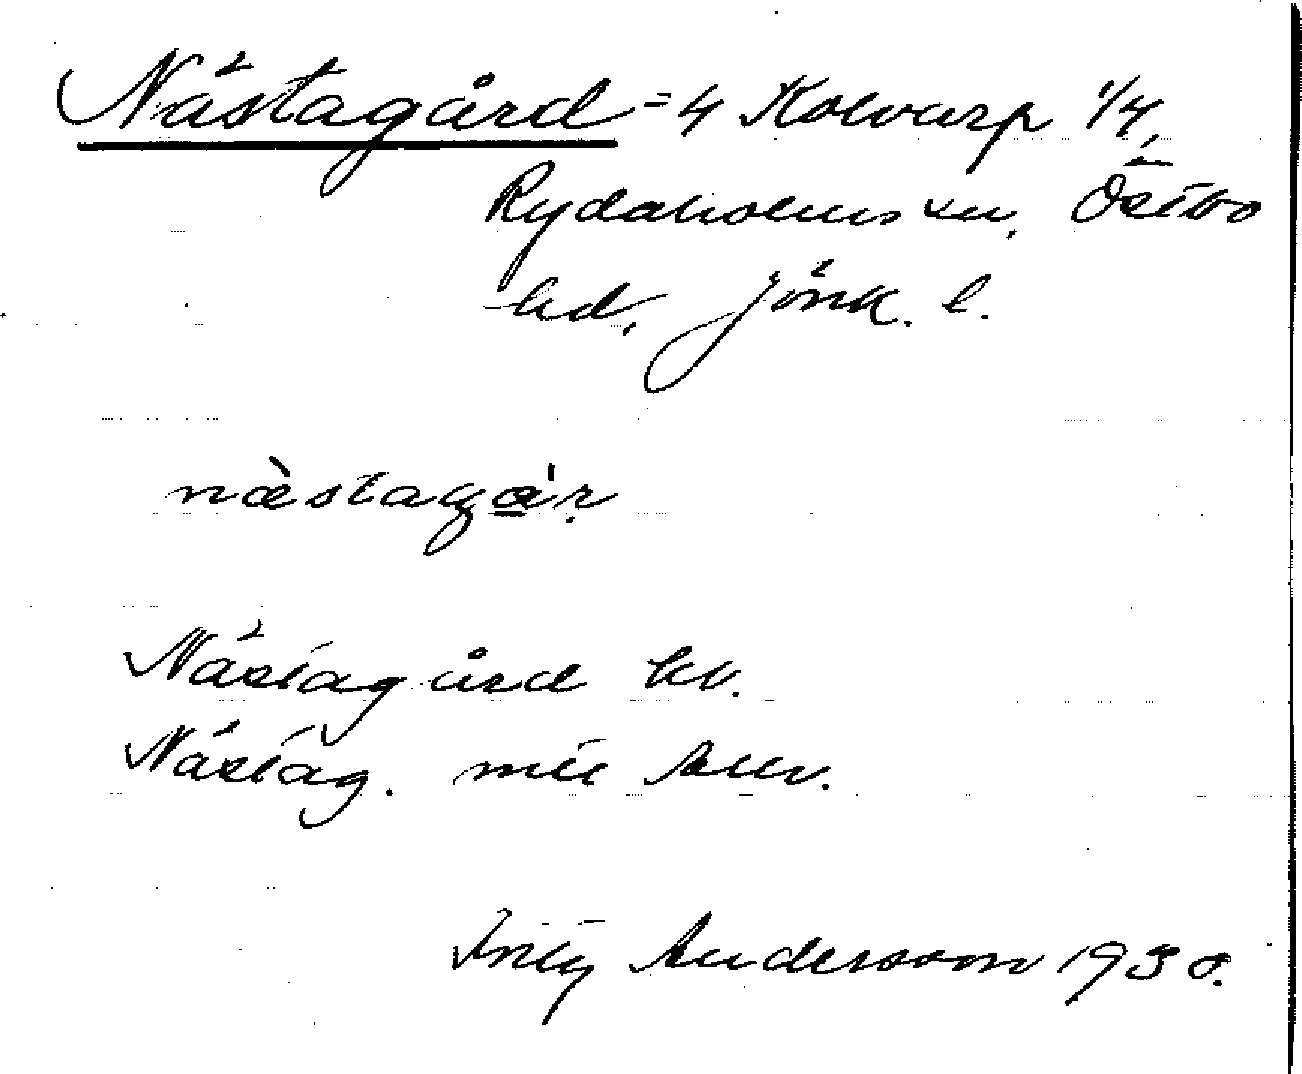 Nästagård = 4 Kolvarp 1/4,
Rydaholms sn, Östbo
hd, Jönk. l.
næ̀stagạ́r
Nästagård kv.
Nästag. mtl
Fritz Andersson 1930.